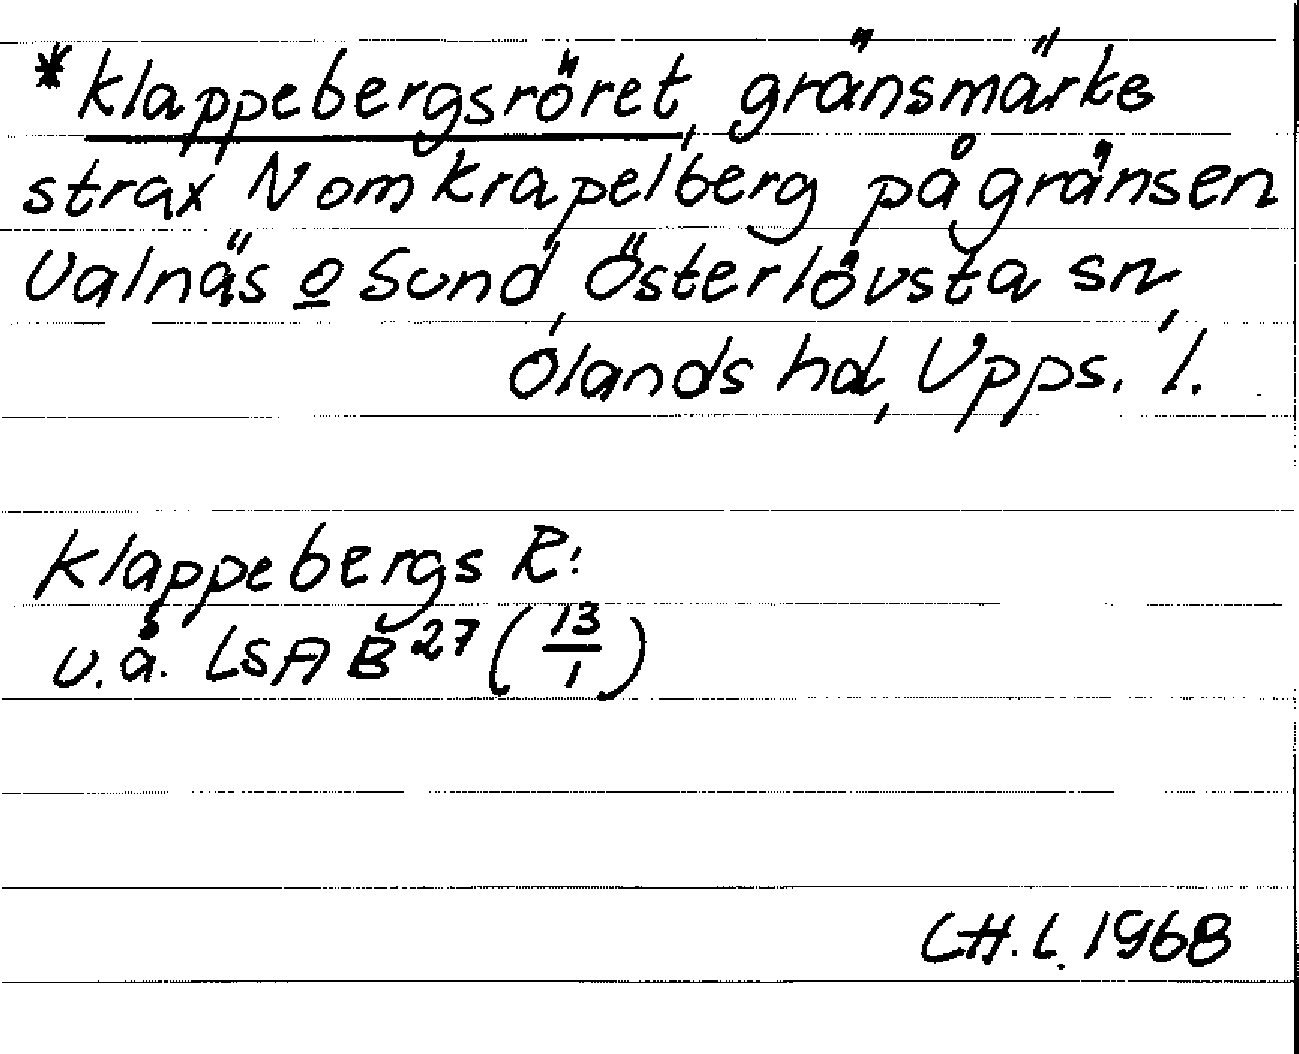 *Klappebergsröret, gränsmärke
strax N om Krapelberg på gränsen
Valnäs o Sund, Österlövsta sn,
Olands hd, Upps. l.
Klappebergs R:
u.å. LSA B 27 (13/1)
CH.L. 1968